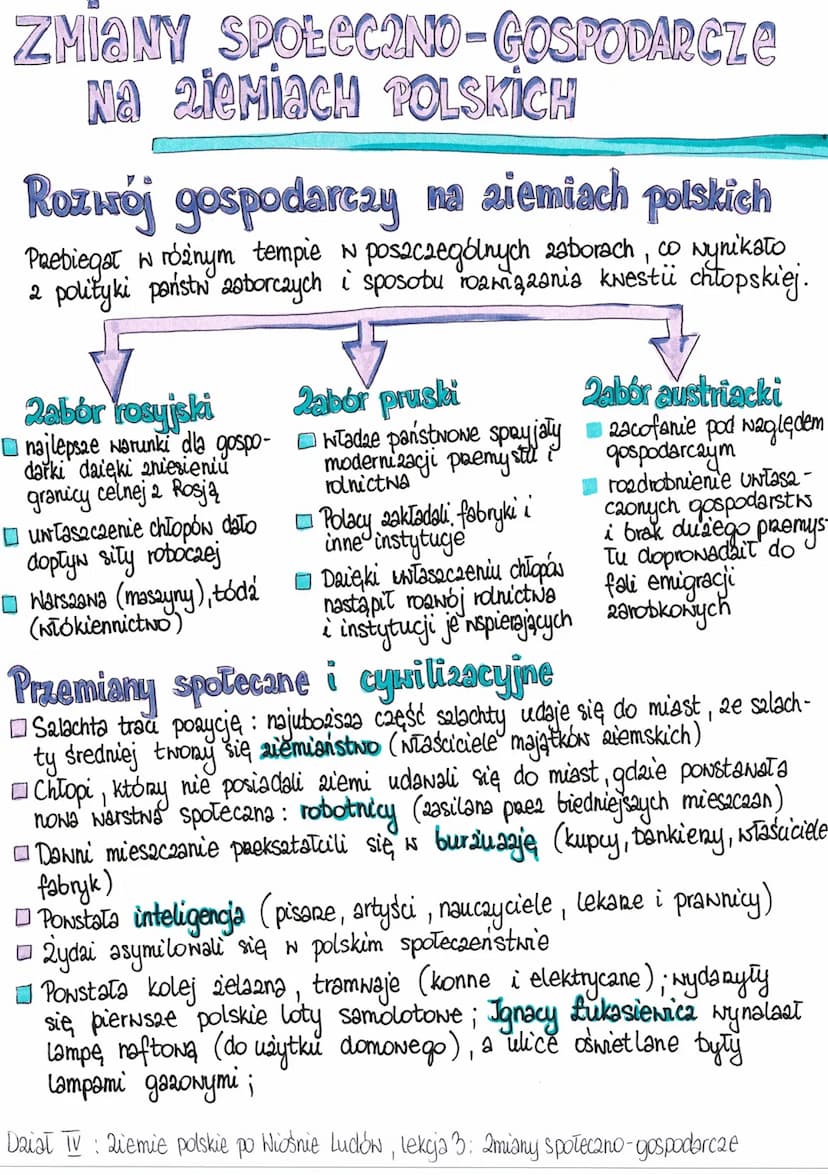 ZMIANY SPOŁECZNO-GOSPODARCZE
NA ZIEMIACH POLSKICH
Rozwój gospodarczy na ziemiach polskich
Przebiegał w różnym tempie w poszczególnych zaborach, co wynikało
z polityki państw zaborczych i sposobu rozwiązania kwestii chłopskiej.
Zabór rosyjski
najlepsze warunki dla gospo-
darki dzięki zniesieniu
granicy celnej z Rosją
uwłaszczenie chłopów dało
dopływ siły roboczej
Warszawa (maszyny), Łódź
(włókiennictwo)
Zabór pruski
władze państwowe sprzyjały
modernizacji przemysłu i
rolnictwa
Polacy zakładali fabryki i
inne instytucje
Dzięki uwłaszczeniu chłopów
nastąpił rozwój rolnictwa
i instytucji je wspierających
Zabór austriacki
zacofanie pod względem
gospodarczym
rozdrobnienie uwłasz-
czonych gospodarstw
i brak dużego przemys-
łu doprowadził do
fali emigracji
zarobkowych
Przemiany społeczne i cywilizacyjne
Szlachta traci pozycję: najuboższa część szlachty udaje się do miast, ze szlach-
ty średniej tworzy się ziemiaństwo (właściciele majątków ziemskich)
Chłopi, którzy nie posiadali ziemi udawali się do miast, gdzie powstawała
nowa warstwa społeczna: robotnicy (zasilana przez biedniejszych mieszczan)
Dawni mieszczanie przekształcili się w burżuazję (kupcy, bankierzy, właściciele
fabryk)
Powstała inteligencja (pisarze, artyści, nauczyciele, lekarze i prawnicy)
Żydzi asymilowali się w polskim społeczeństwie
Powstała kolej żelazna, tramwaje (konne i elektryczne); wydarzyły
się pierwsze polskie loty samolotowe; Ignacy Łukasiewicz wynalazł
lampę naftową (do użytku domowego), a ulice oświetlane były
lampami gazowymi;
Dział IV: Ziemie polskie po Wiośnie Ludów, lekcja 3: Zmiany społeczno-gospodarcze